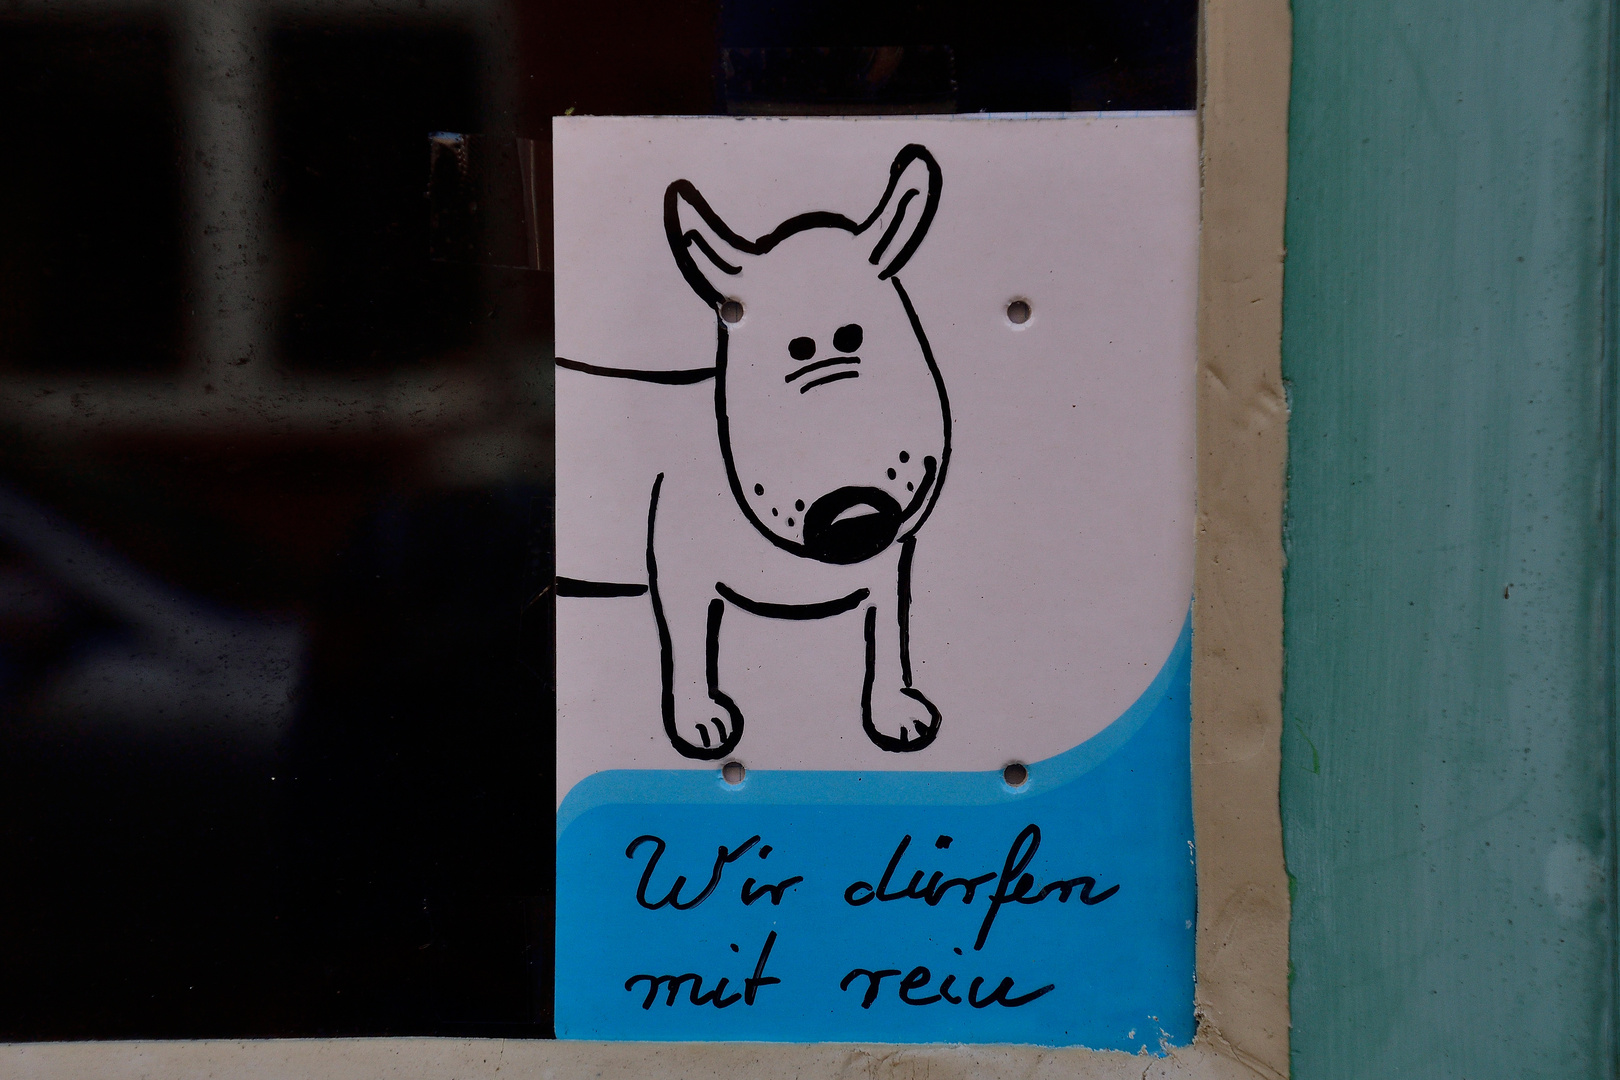 Wir dürfen
mit rein